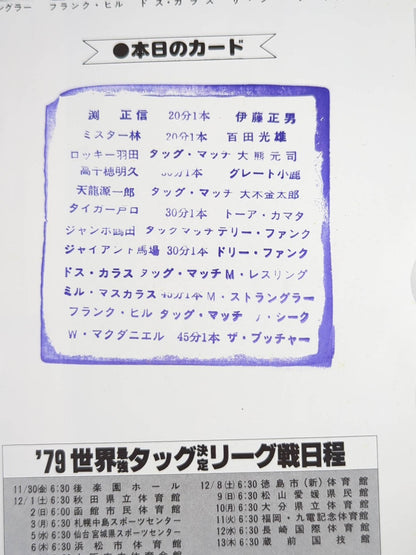 ングラー フランク・ヒル ドス・カラス
●本日のカード
渕 正信 20分1本 伊藤正男
ミスター林 20分1本 百田光雄
ロッキー羽田 タッグ・マッチ 大熊元司
高千穂明久 30分1本 グレート小鹿
天龍源一郎 タッグ・マッチ 大木金太郎
タイガー戸口 30分1本 トーア・カマタ
ジャンボ鶴田 タッグマッチ テリー・ファンク
ジャイアント馬場 30分1本 ドリー・ファンク
ドス・カラス タッグ・マッチ M・レスリング
ミル・マスカラス 45分1本 M・ストラングラー
フランク・ヒル タッグ・マッチ ザ・シーク
W・マクダニエル 45分1本 ザ・ブッチャー
'79世界最強タッグ決定リーグ戦日程
11/30㊎ 6:30 後楽園ホール
12/1㊏ 6:30 秋田県立体育館
2㊐ 6:30 函館市民体育館
3㊊ 6:30 札幌中島スポーツセンター
5㊌ 6:30 仙台宮城県スポーツセンター
6㊍ 6:30 浜松市体育館
12/8㊏ 6:30 徳島市(新)体育館
9㊐ 6:30 松山愛媛県民館
10㊊ 6:30 大分県立体育館
11㊋ 6:30 福岡・九電記念体育館
12㊌ 6:30 長崎国際体育館
13㊍ 6:30 蔵前国技館